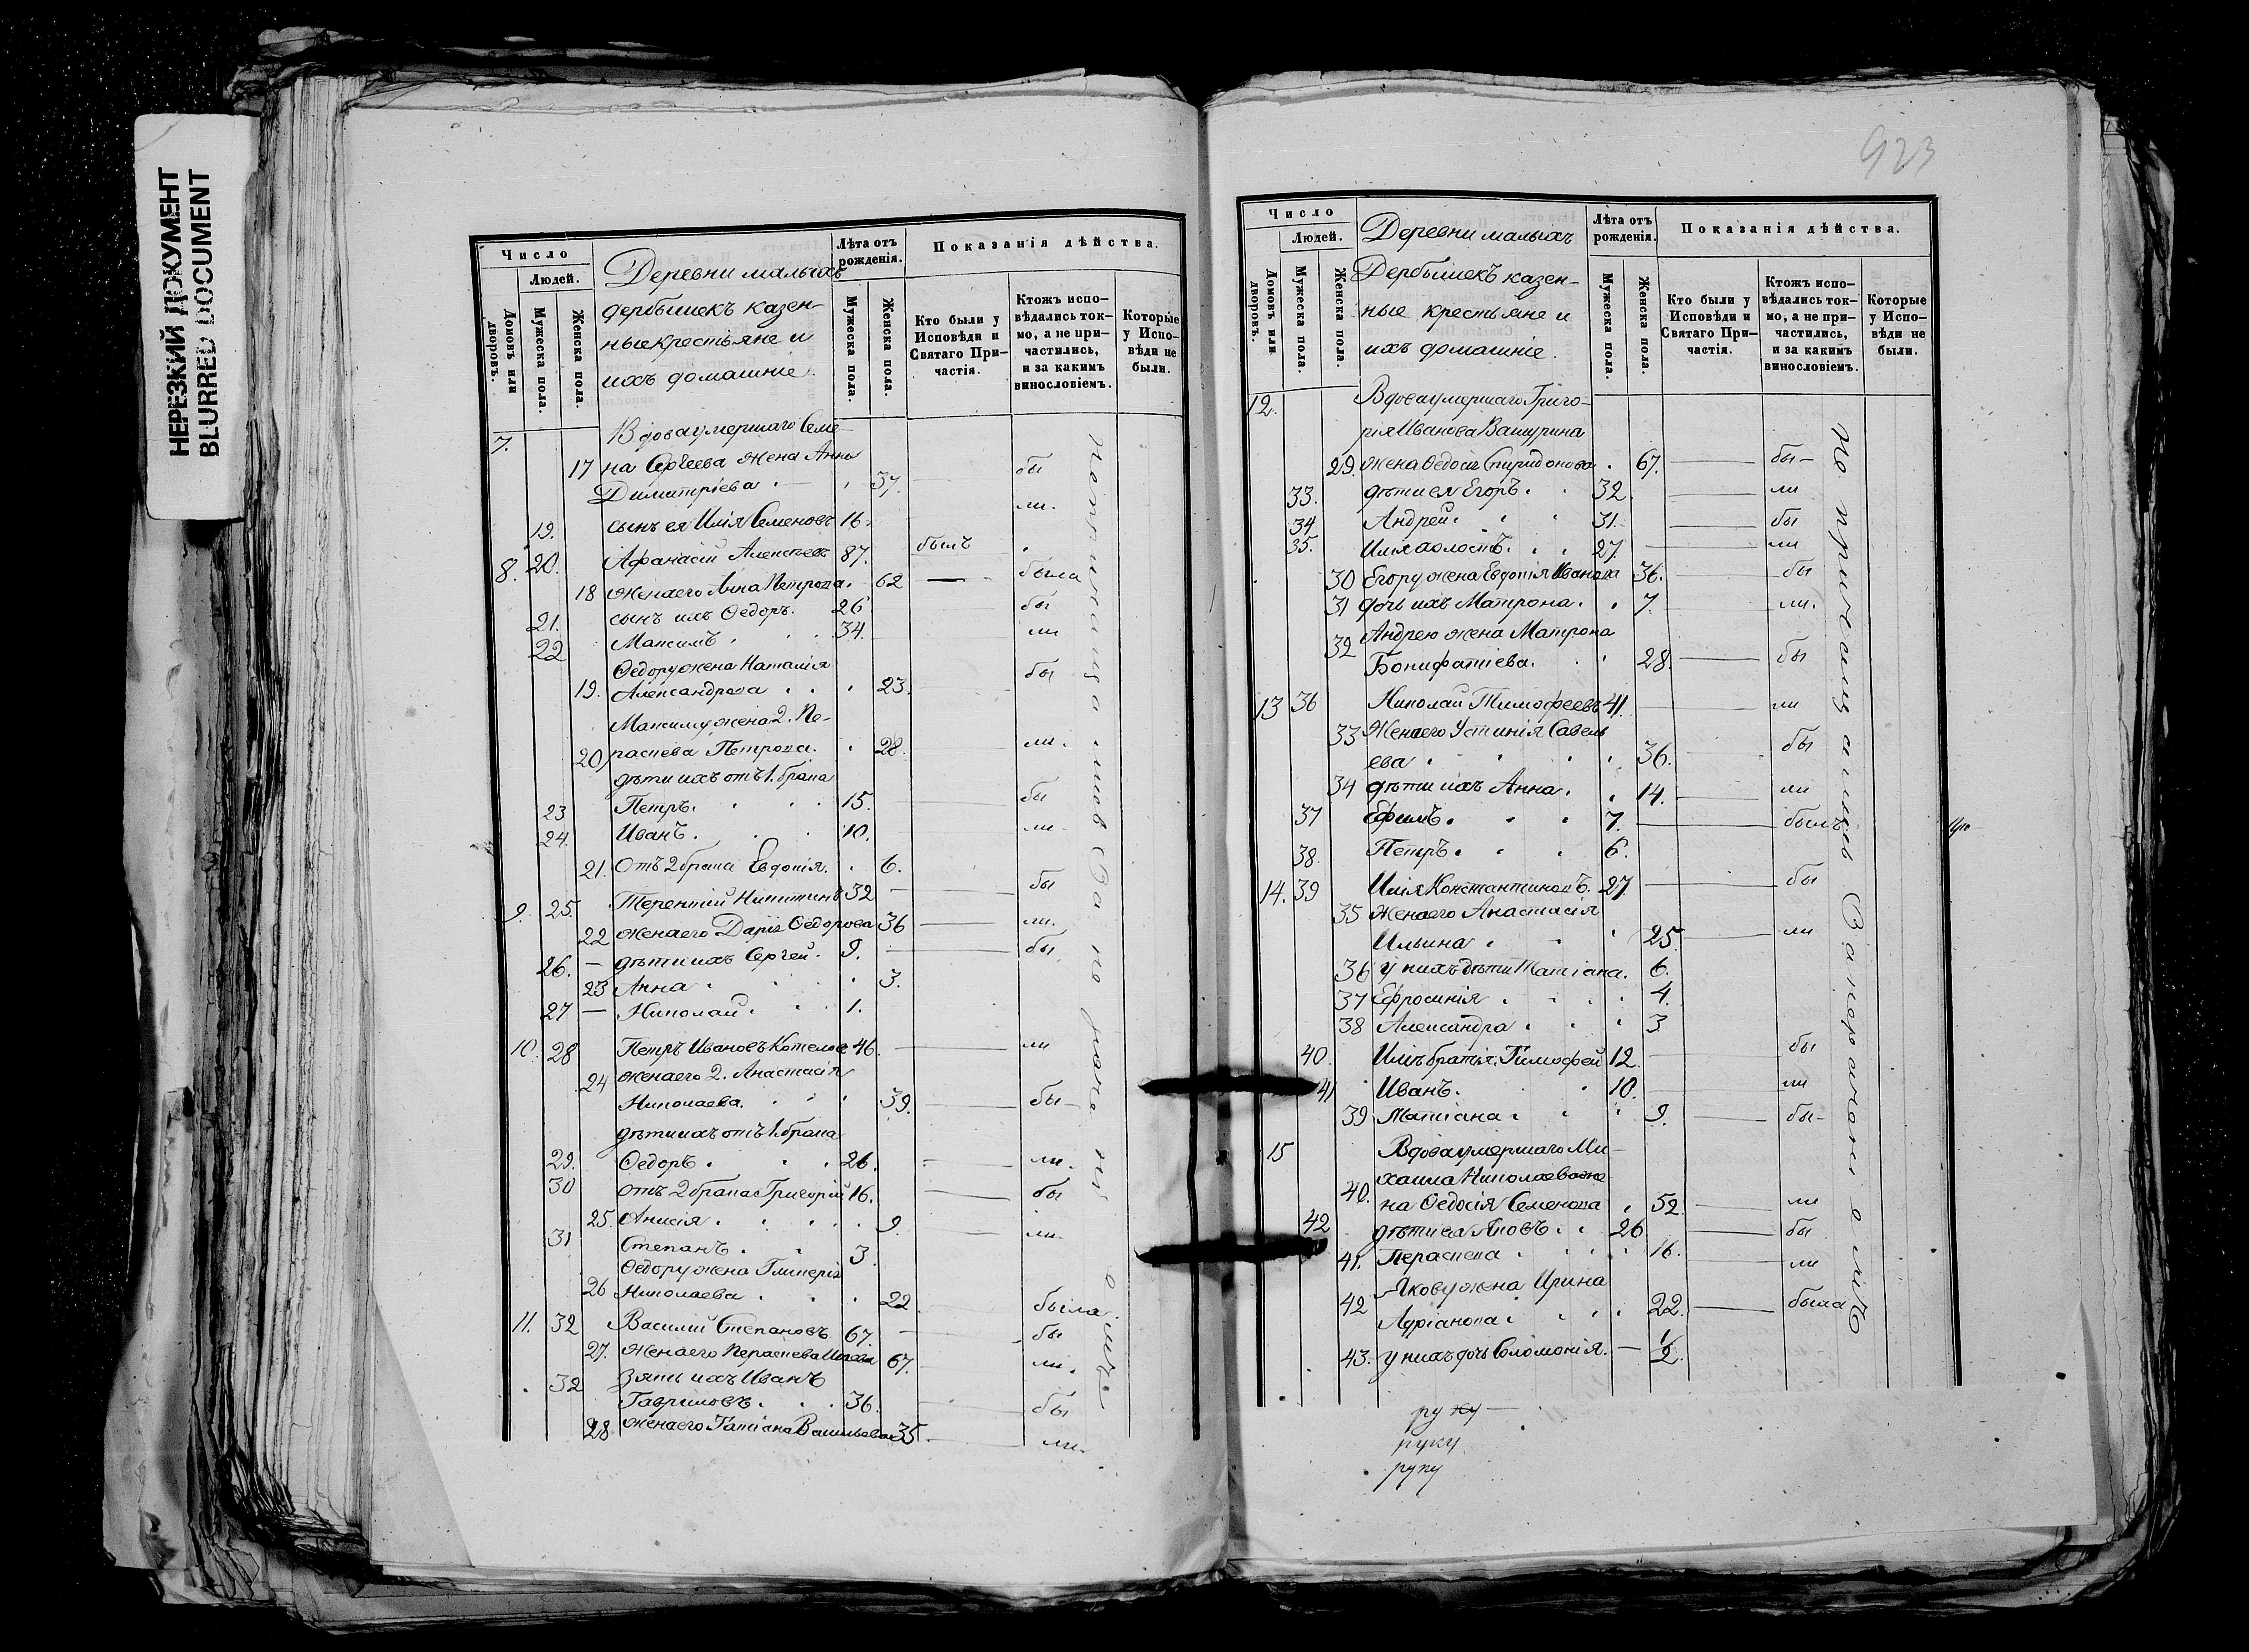 НЕРЕЗКИЙ ДОКУМЕНТ
BLURRED DOCUMENT
Число
Людей.
Домовъ или дворовъ.
Мужеска пола.
Женска пола.
Деревни малыхъ
дербышекъ казен-
ные крестьяне и
ихъ домашніе.
Лѣта отъ рожденія.
Мужеска пола.
Женска пола.
Показанія дѣйства.
Кто были у Исповѣди и Святаго При-частія.
Ктожъ испо-вѣдались ток-мо, а не при-частились, и за какимъ винословіемъ.
Которые у Испо-вѣди не были.
7. Вдова умершаго Семе-
17 на Сергѣева жена Анна
Димитріева 37. бы
19. сынъ ея Илія Семеновъ 16. ли.
8. 20. Афанасій Алексѣевъ 87. былъ
18 жена его Анна Петрова 62 была
21. сынъ ихъ Ѳедоръ. 26 бы
22 Максимъ 34. ли
Ѳедору жена Наталія
19. Александрова 23. бы
Максиму жена 2. Па-
20 раскева Петрова. 28 ли.
дѣти ихъ отъ 1. брака
23 Петръ. 15. бы
24. Иванъ. 10. ли-
21. Отъ 2 брака Евдокія. 6.
9. 25. Терентій Никитинъ 32 бы
22 жена его Дарія Ѳедорова 36 ли.
26. — дѣти ихъ Сергей. 9. бы.
23 Анна 3.
27 — Николай. 1.
10. 28 Петръ Ивановъ Котелов 46. ли
24 жена его 2. Анастасія
Николаева. 39. бы-
дѣти ихъ отъ 1. брака
29. Ѳедоръ. 26. ли.
30 отъ 2 брака Григорій 16. бы
25. Анисія 9. ли.
31 Степанъ. 3.
Ѳедору жена Гликерія
26 Николаева 22 была
11. 32 Василій Степановъ 67. бы
27. жена его Параскева 67. ли.
32 Зять ихъ Иванъ
Гавриловъ. 36. бы
28 жена его Татіана Васильева 35. ли.
923
Число
Людей.
Домовъ или дворовъ.
Мужеска пола.
Женска пола.
Деревни малыхъ
Дербышекъ казен-
ные крестьяне и
ихъ домашніе.
Лѣта отъ рожденія.
Мужеска пола.
Женска пола.
Показанія дѣйства.
Кто были у Исповѣди и Святаго При-частія.
Ктожъ испо-вѣдались ток-мо, а не при-частились, и за какимъ винословіемъ.
Которые у Испо-вѣди не были.
12. Вдова умершаго Григо-
рія Иванова Вашурина
29. жена Ѳедосія Спиридонова 67. бы-
33. дѣти ея Егоръ. 32. ли
34 Андрей 31. бы
35. Илія холостъ. 27. ли
30 Егору жена Евдокія Иванова 36. бы
31 дочь ихъ Матрона. 7. ли.
Андрею жена Матрона
32 Бонифатіева. 28. бы
13 36 Николай Тимофеевъ 41. ли
33 Жена его Устинія Савель
ева 36. бы
34 дѣти ихъ Анна. 14. ли
37 Ефимъ. 7. былъ
38. Петръ. 6.
14. 39 Илія Константиновъ. 27. бы
35 Жена его Анастасія
Ильина 25. ли
36 у нихъ дѣти Татіана. 6.
37 Ефросинія 4.
38 Александра 3
40. Иліи братья: Тимофей 12. бы
41 Иванъ. 10. ли
39 Татіана 9. бы-
15 Вдова умершаго Ми-
хаила Николаева же
40. на Ѳедосія Семенова 52. ли
42 дѣти ея Яковъ. 26 бы
41. Параскева 16. ли
Якову жена Ирина
42 Адріанова 22. была
43. у нихъ дочь Соломонія. — 1/2.
руку
руку
руку